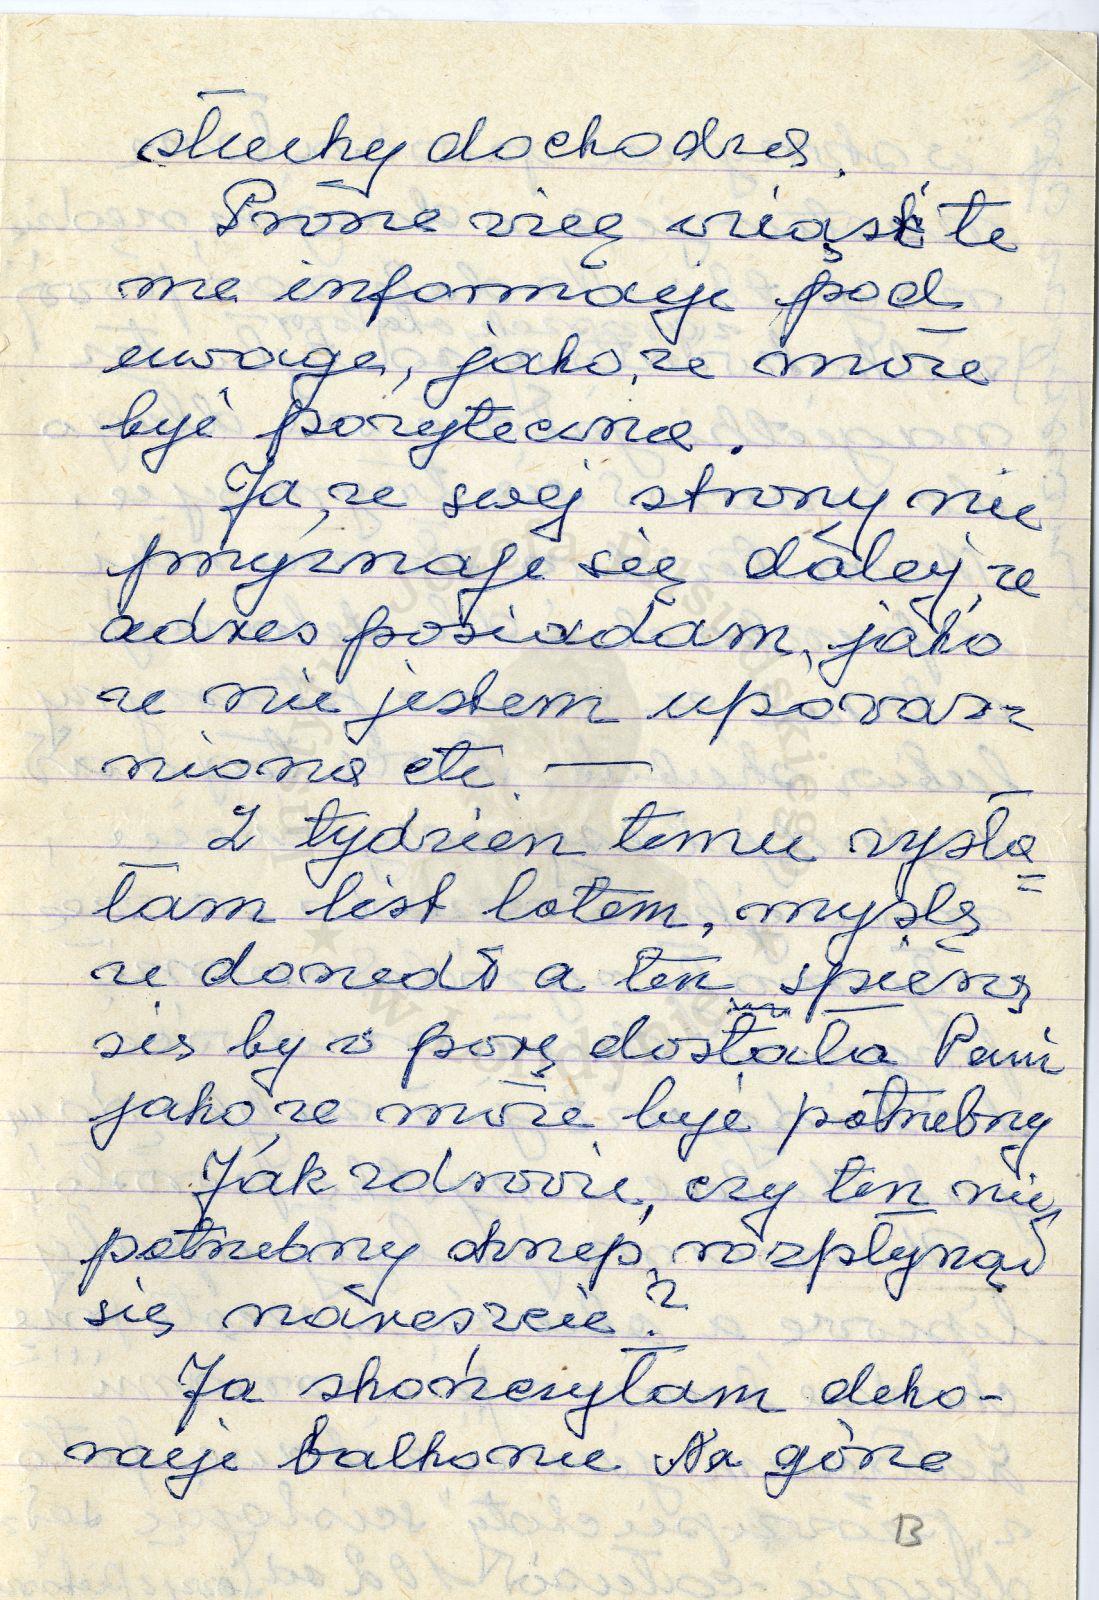 słuchy dochodzą.
Proszę więc wziąść te
me informacje pod
uwagę, jako, że może
być pożyteczna.
Ja, ze swej strony nie
przyznaję się dalej, że
adres posiadam, jako
że nie jestem upoważ=
niona etc —
Z tydzień temu wysła
=
łam list lotem, myślę
że doszedł a ten spieszę
się by w porę dostała Pani
jako, że może być potrzebny
Jak zdrowie, czy ten nie,
potrzebny strup, rozpłynął
się nareszcie?
Ja skończyłam deko-
rację balkonu Na górze
B
Instytut Józefa Piłsudskiego
w Londynie